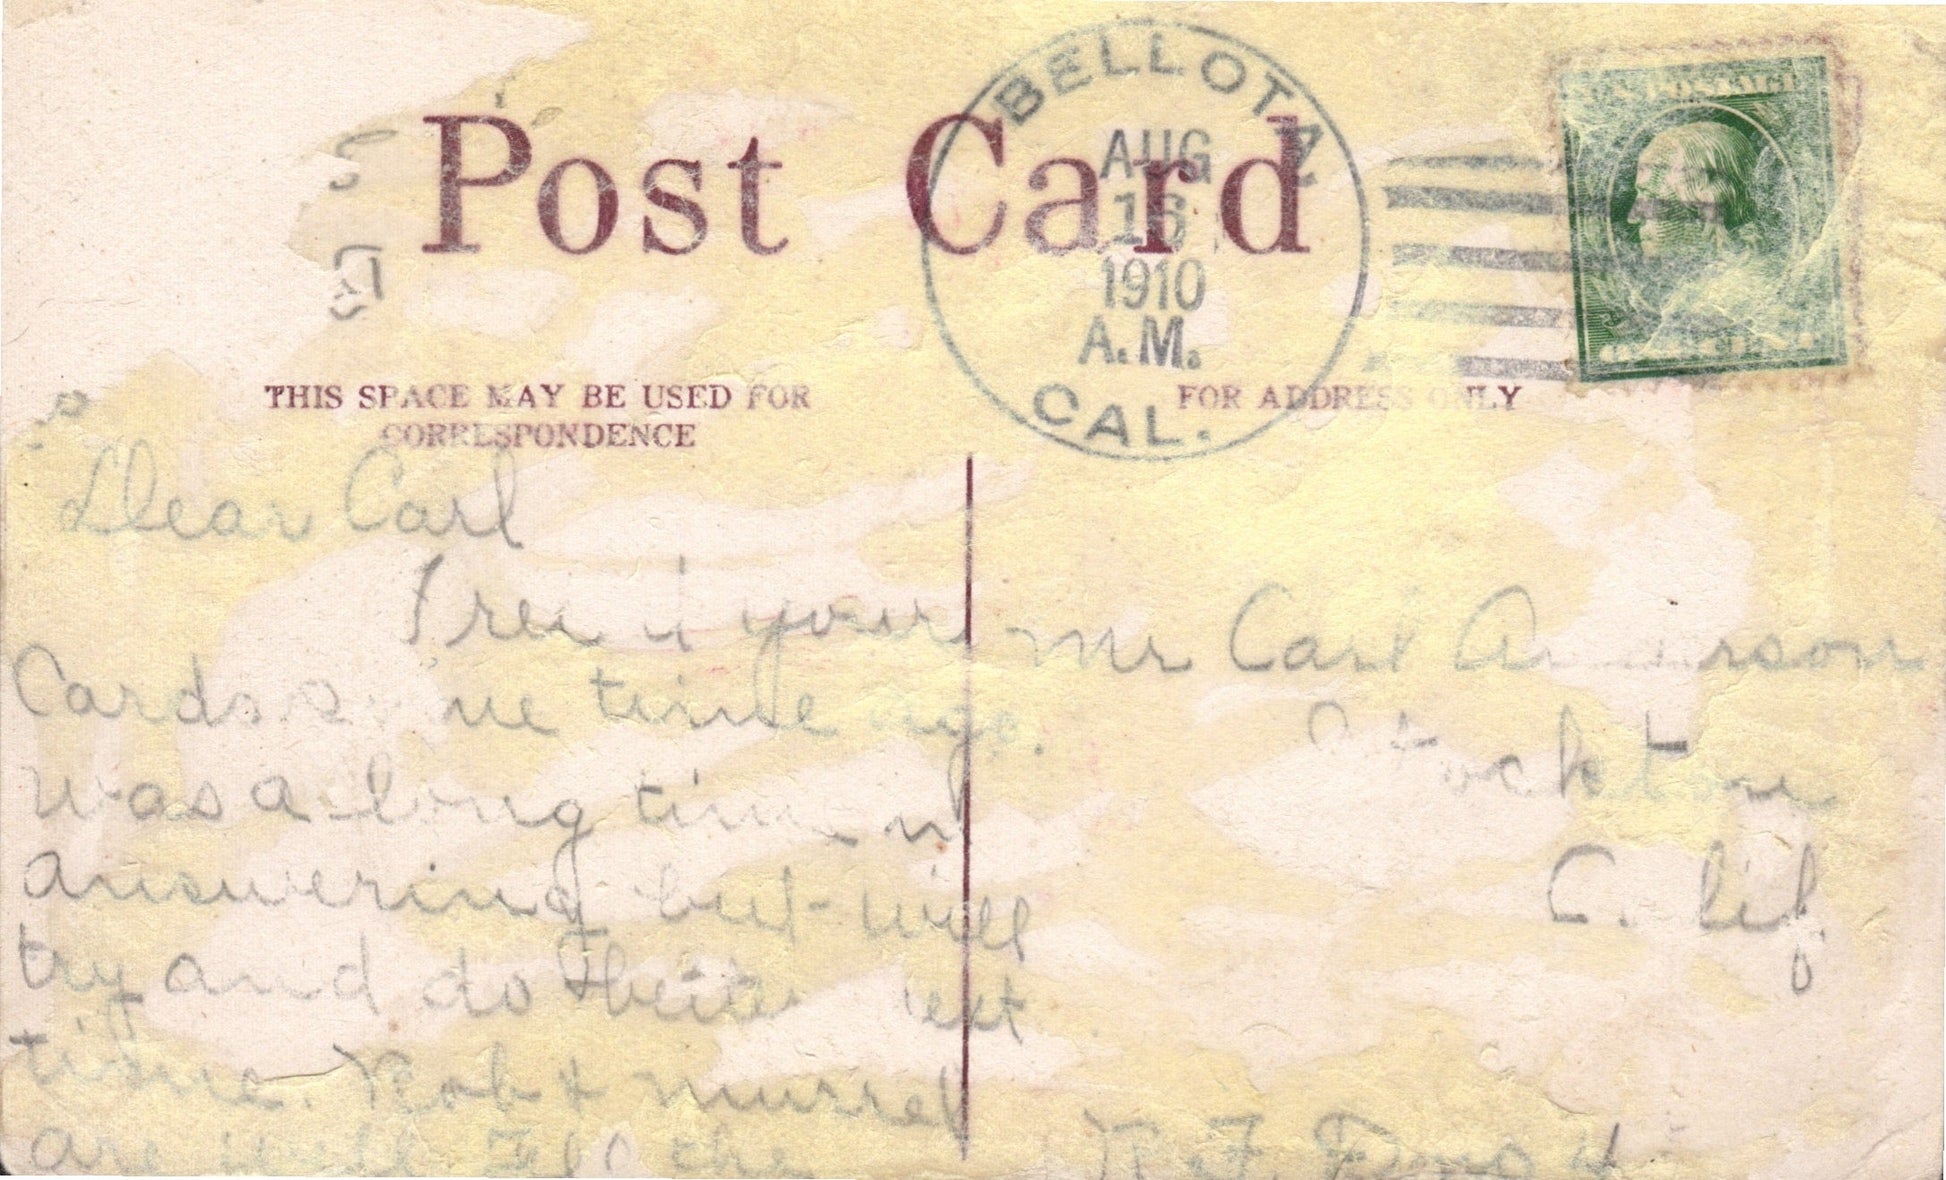 Post Card
BELLOTA,
AUG
16
1910
A.M.
CAL.
U.S. POSTAGE
ONE CENT
THIS SPACE MAY BE USED FOR
CORRESPONDENCE
FOR ADDRESS ONLY
Dear Carl
I rec'd your
Cards some time ago.
was a long time in
answering but will
try and do better next
time. Rob & Murrel
are well. the
Mr Carl Anderson
Stockton
Calif.
R.F.D. no 4